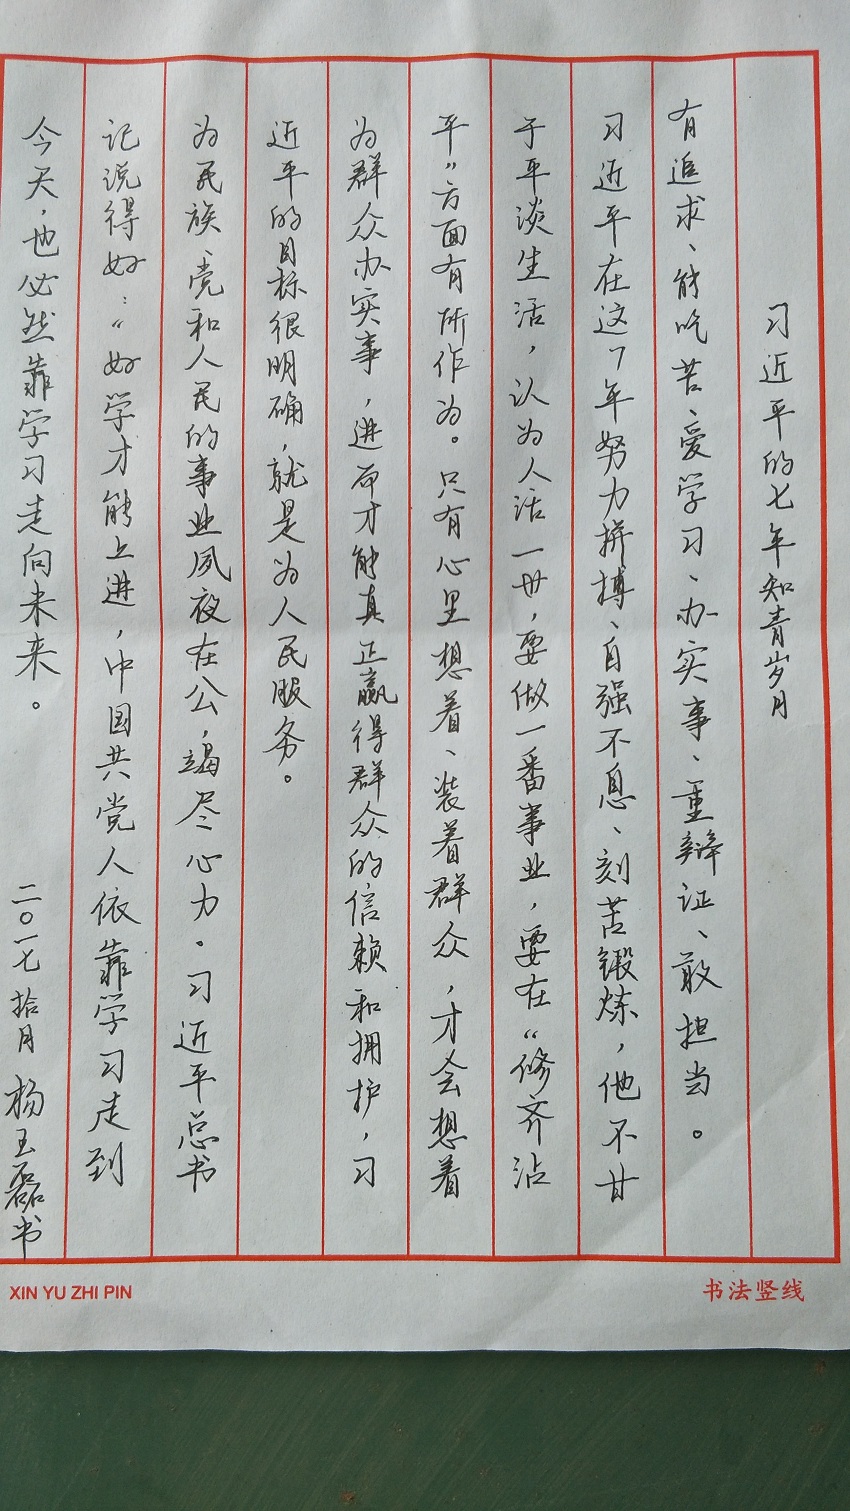 习近平的七年知青岁月
有追求、能吃苦、爱学习、办实事、重辩证、敢担当。
习近平在这7年努力拼搏、自强不息、刻苦锻炼，他不甘
于平淡生活，认为人活一世，要做一番事业，要在“修齐沾
平”方面有所作为。只有心里想着、装着群众，才会想着
为群众办实事，进而才能真正赢得群众的信赖和拥护，习
近平的目标很明确，就是为人民服务。
为民族、党和人民的事业夙夜在公，竭尽心力。习近平总书
记说得好：“好学才能上进，中国共党人依靠学习走到
今天，也必然靠学习走向未来。
二〇一七拾月 杨玉磊书
XIN YU ZHI PIN
书法竖线